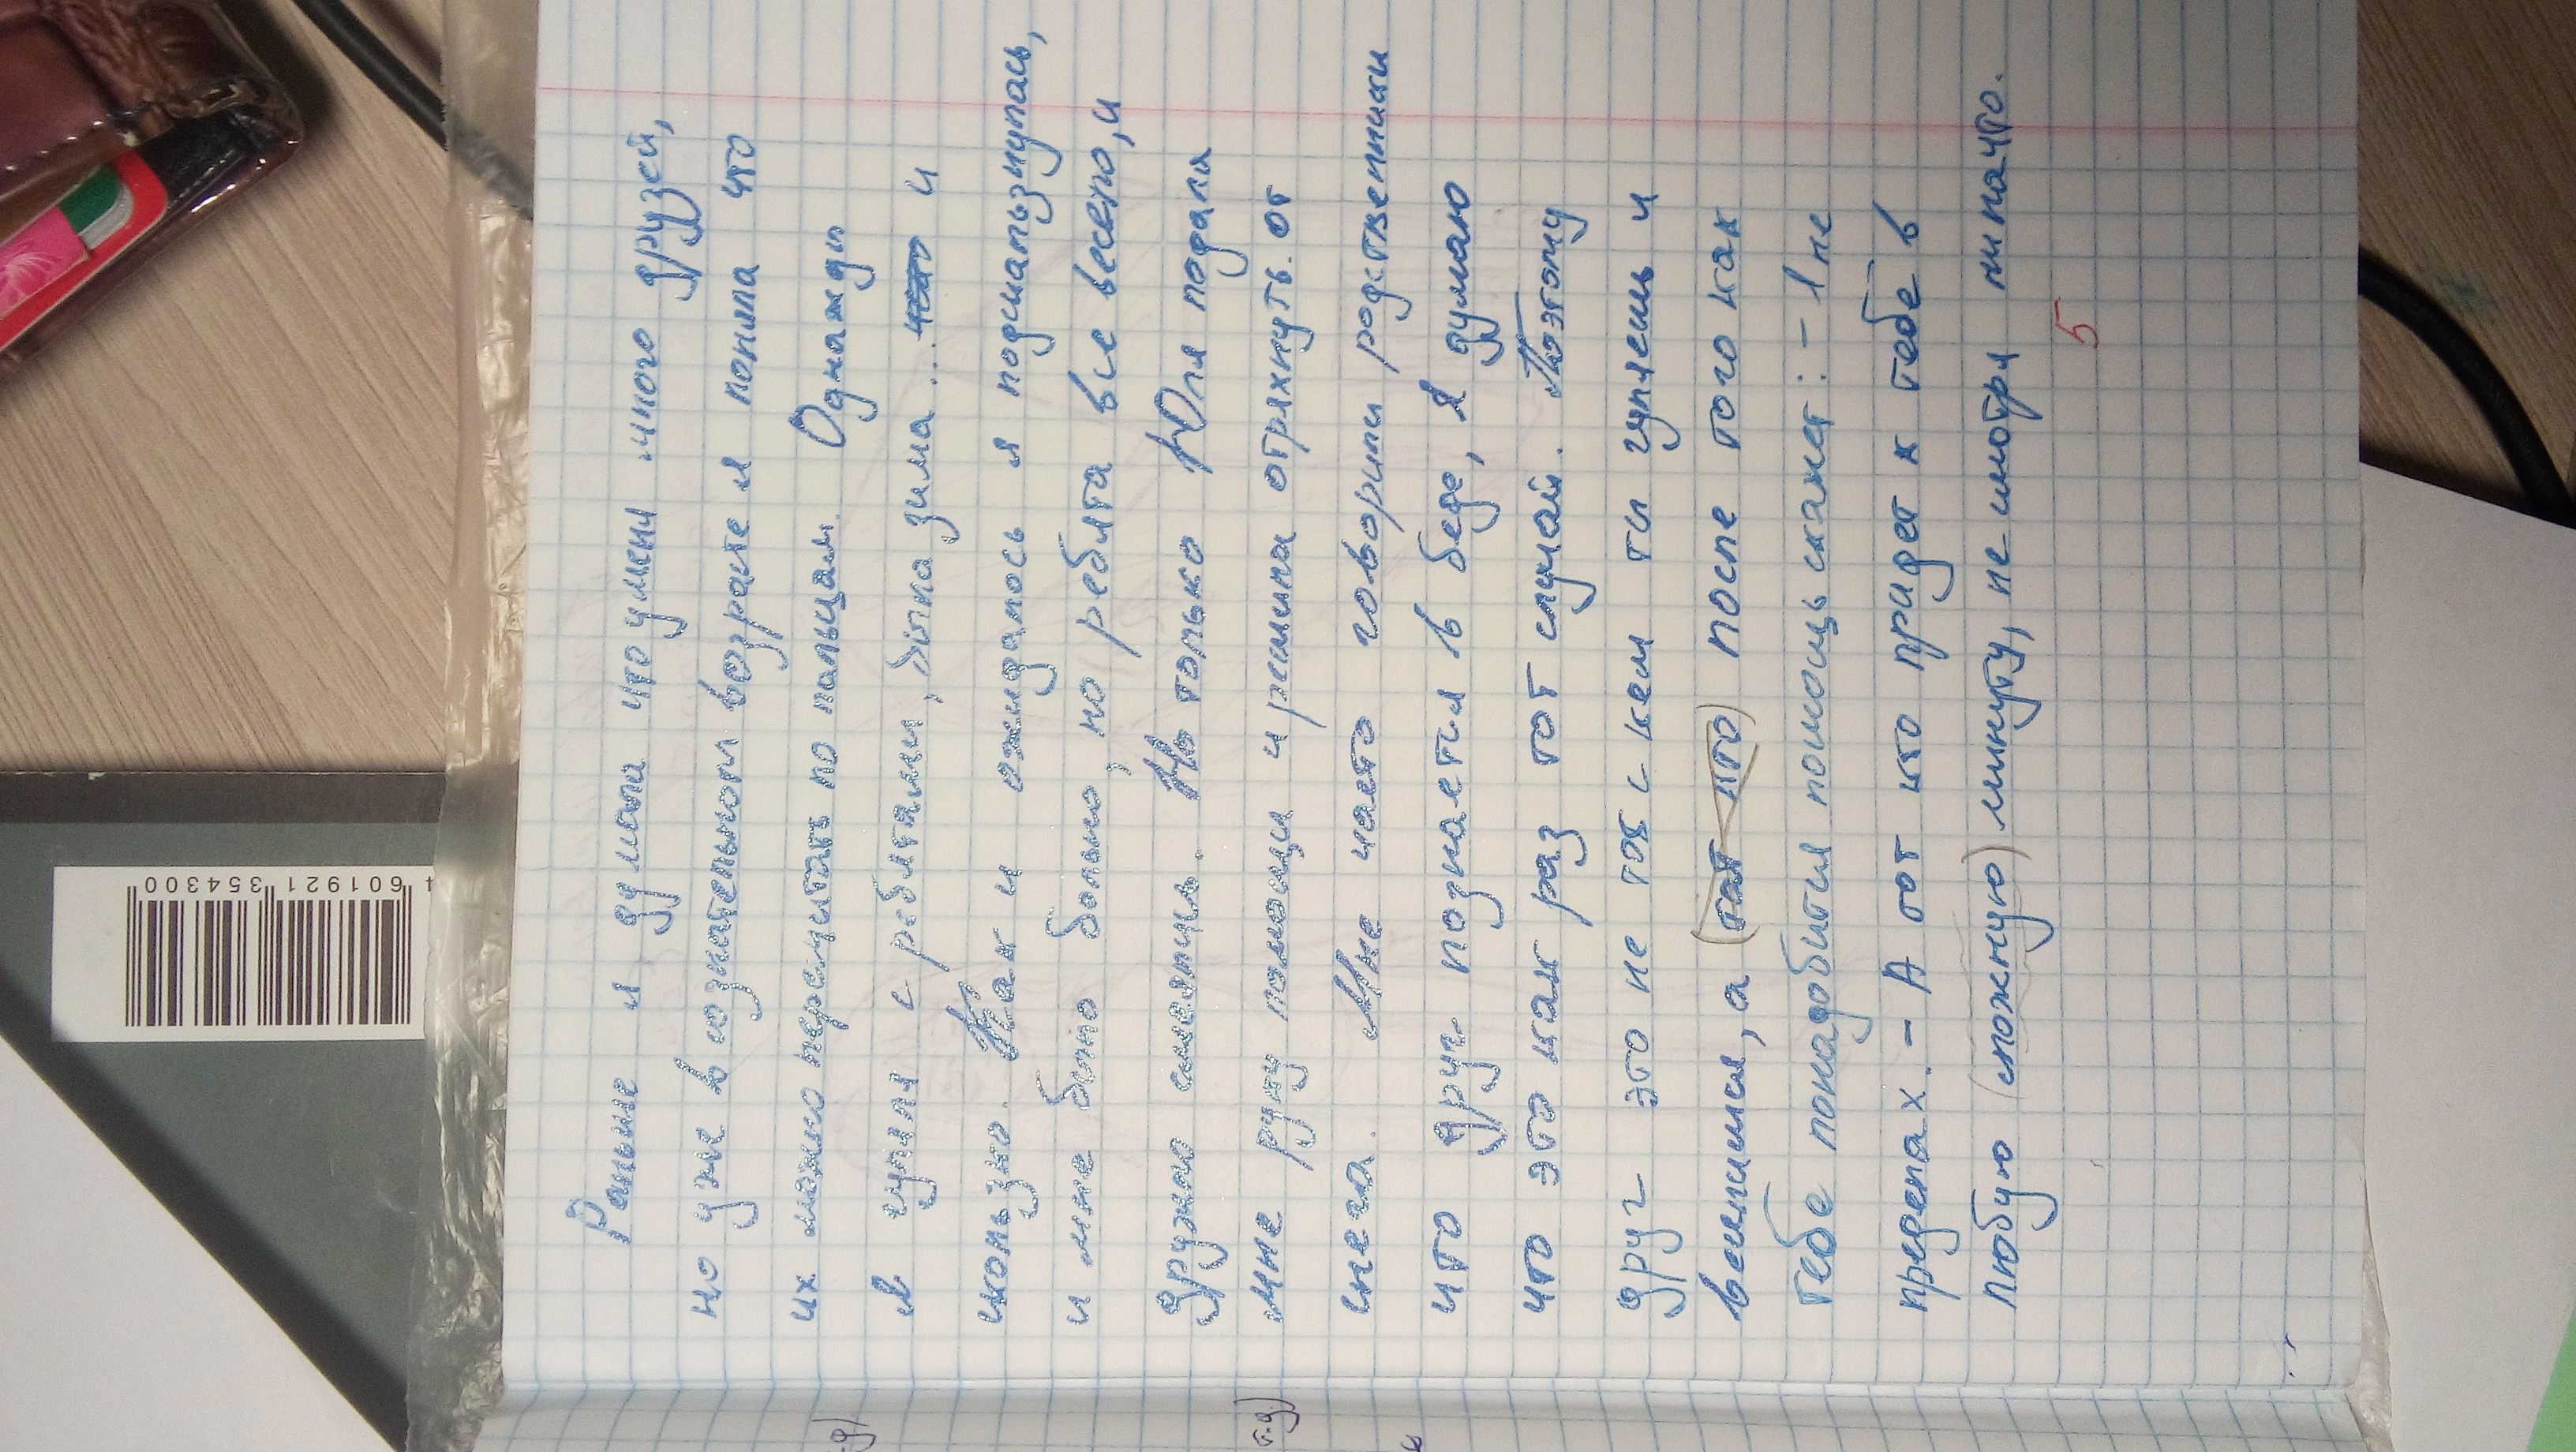 Раньше я думала что у меня много друзей,
но уже в сознательном возрасте я поняла что
их можно пересчитать по пальцам. Однажды
я гуляла с ребятами, была зима... и
скользко. Как и ожидалось я подскальзнулась,
и мне было больно, но ребята все весело, и
дружно смеялись. Но только Юля подала
мне руку помощи и решила отряхнуть от
снега. Мне часто говорили родственники
что друг познается в беде, я думаю
что это как раз тот случай. Поэтому
друг это не тот с кем ты гуляешь и
веселишься, а (тот кто) после того как
тебе понадобится помощь скажет: - Я не
пределах. - А тот кто придет к тебе в
любую (сложную) минуту, не смотря ни на что.
5
4 601921 354300
т.д)